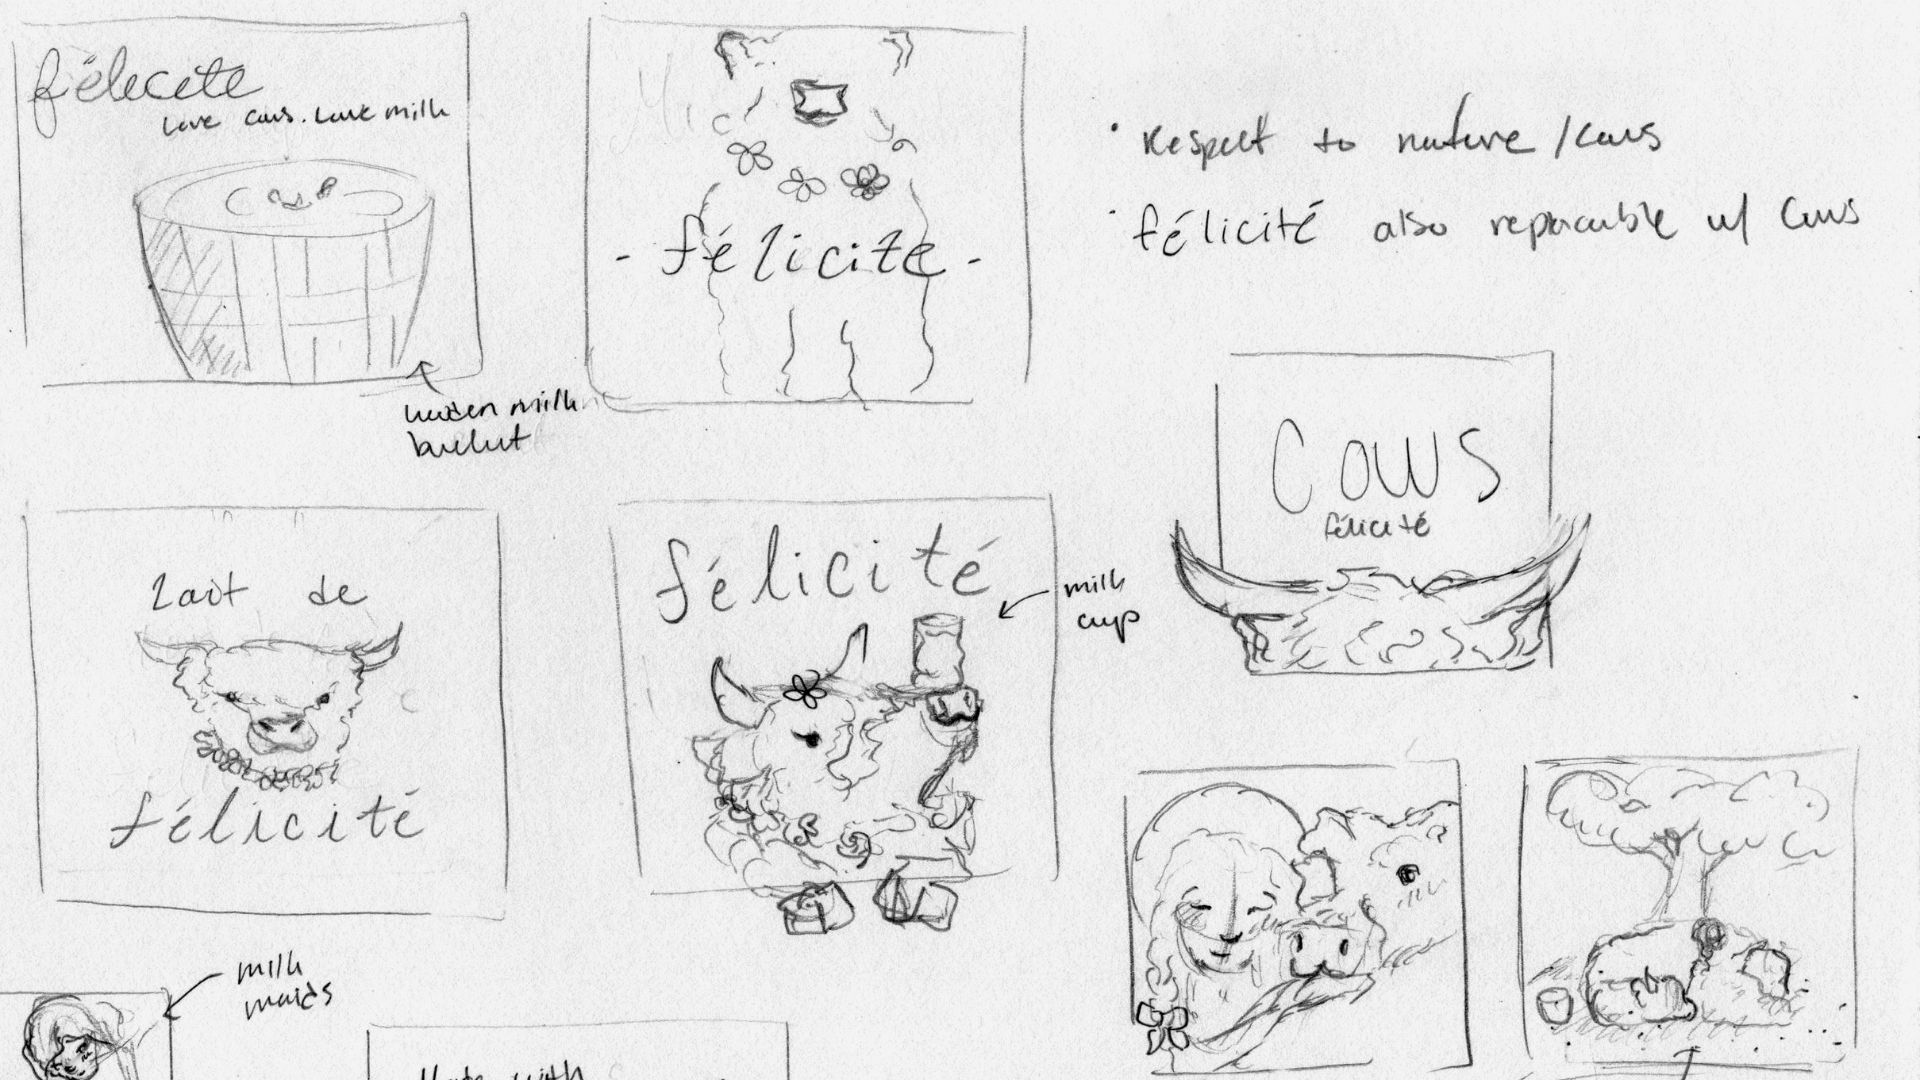 félecete
Love cows. Love milk
wooden milk
bucket
- félicite -
• Respect to nature/cows
• félicité also replaceable w/ cows
Cows
félicité
Lait de
félicité
félicité
milk
cup
milk
maids
Made with